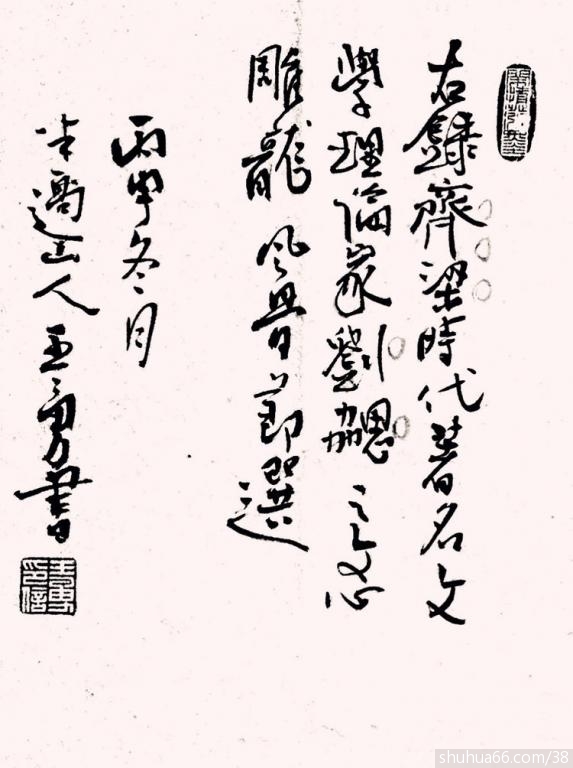 右錄齊梁時代著名文
學理論家劉勰之文心
雕龍風骨節選
丙申冬月
半山人王勇書
王勇印信
shuhua66.com/38